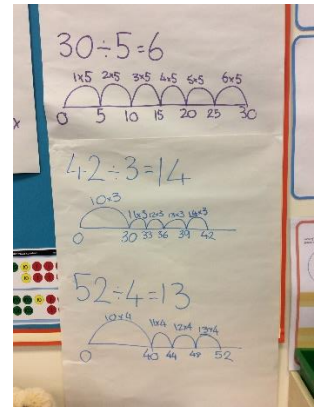 30÷5=6
1x5 2x5 3x5 4x5 5x5 6x5
0 5 10 15 20 25 30
42÷3=14
10x3 11x3 12x3 13x3 14x3
0 30 33 36 39 42
52÷4=13
10x4 11x4 12x4 13x4
0 40 44 48 52